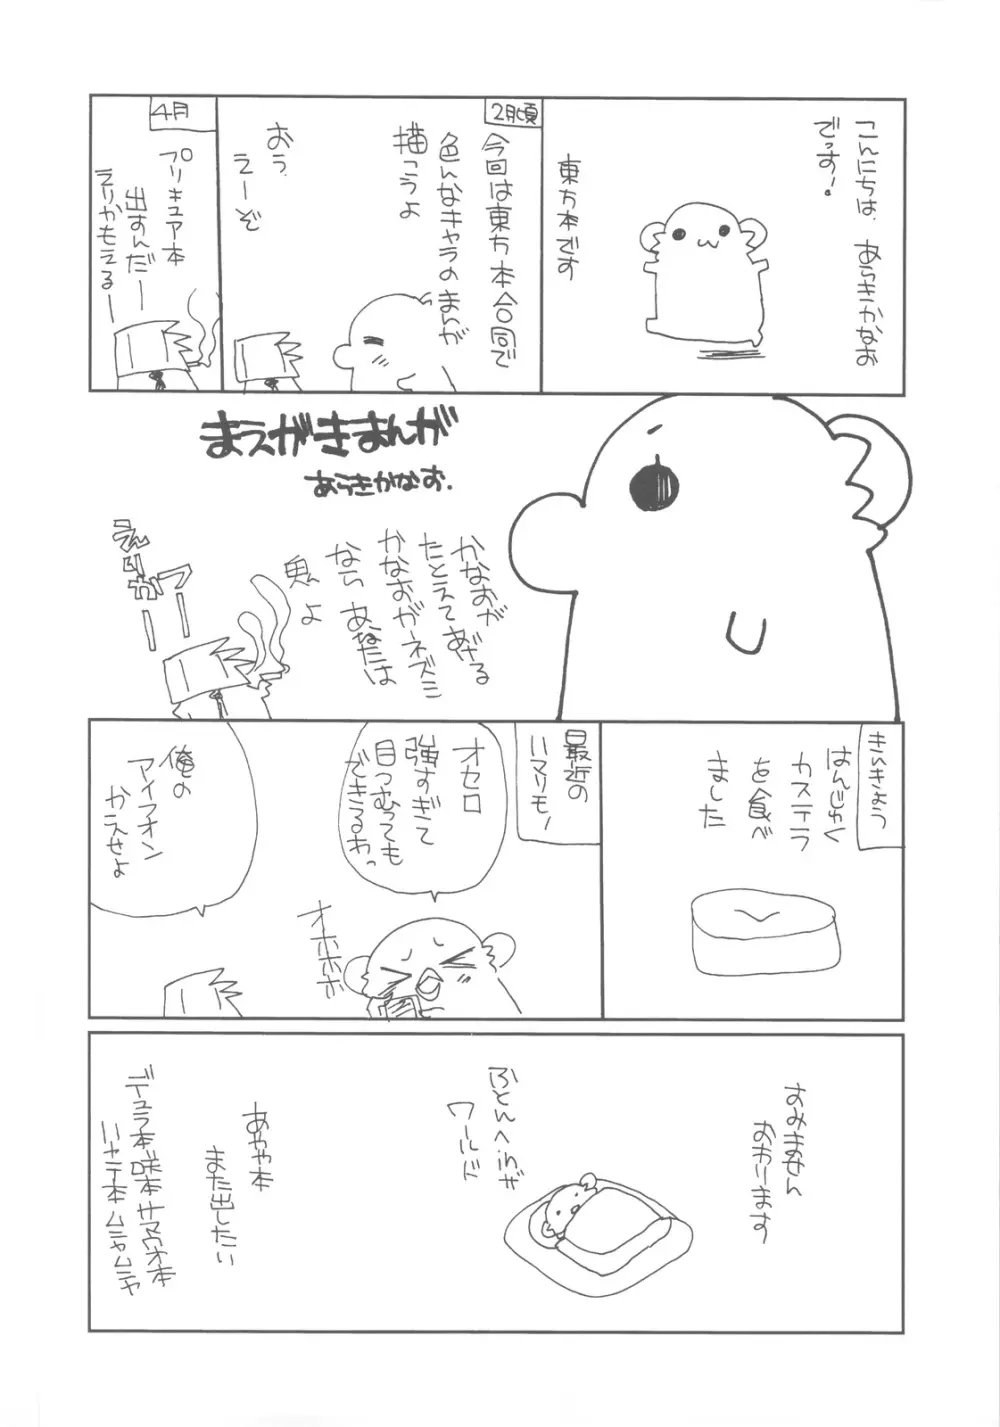 こんにちは、あらきかなお
でっす!
東方本です
2月頃
今回は東方本合同で
色んなキャラのまんが
描こうよ
おぅ、
えーぞ
4月
プリキュア本
出すんだー
えりかもえるー
まえがきまんが
あらきかなお.
かなおが
たとえてあげる
かなおがネズミ
なら あなたは
魚よ
えりかっー
きんきょう
はんじゅく
カステラ
を食べ
ました
最近の
ハマりモノ
オセロ
強すぎて
目つむっても
できるわっ
オホホホ
俺の
アイフォン
かえせよ
すみません
おわります
ふとんへ.inザ
ワールド
あやや本
また出したい
デュラ本 咲本 サマウォ本
ハヤテ本 ムニャムニャ